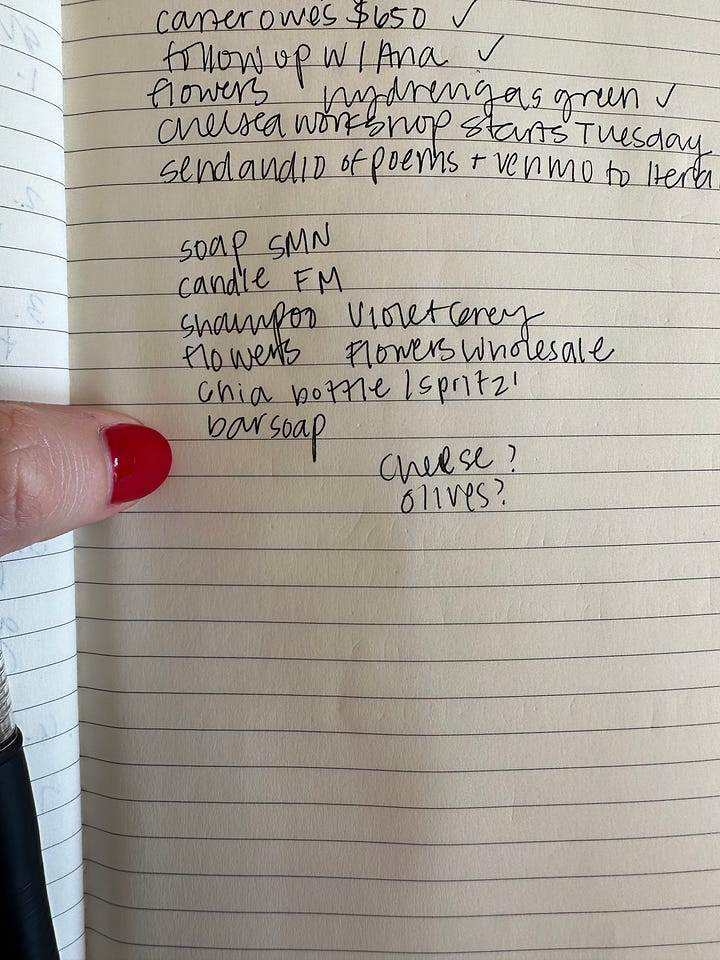 carter owes $650 ✓
follow up w/ Ana ✓
flowers hydrengas green ✓
chelsea workshop starts Tuesday
send audio of poems + venmo to
soap SMN
candle FM
shampoo Violet Grey
flowers Flowers Wholesale
chia bottle / spritz!
bar soap
cheese?
olives?